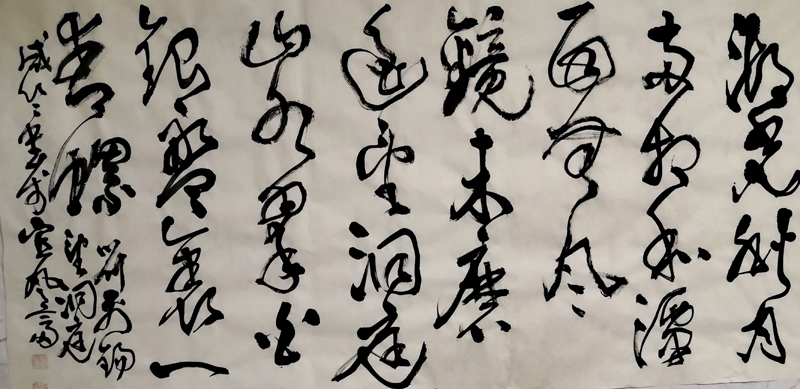 湖光秋月
兩相和潭
面無風
鏡未磨
遙望洞庭
山水翠白
銀盤裏一
青螺
錫
望洞庭